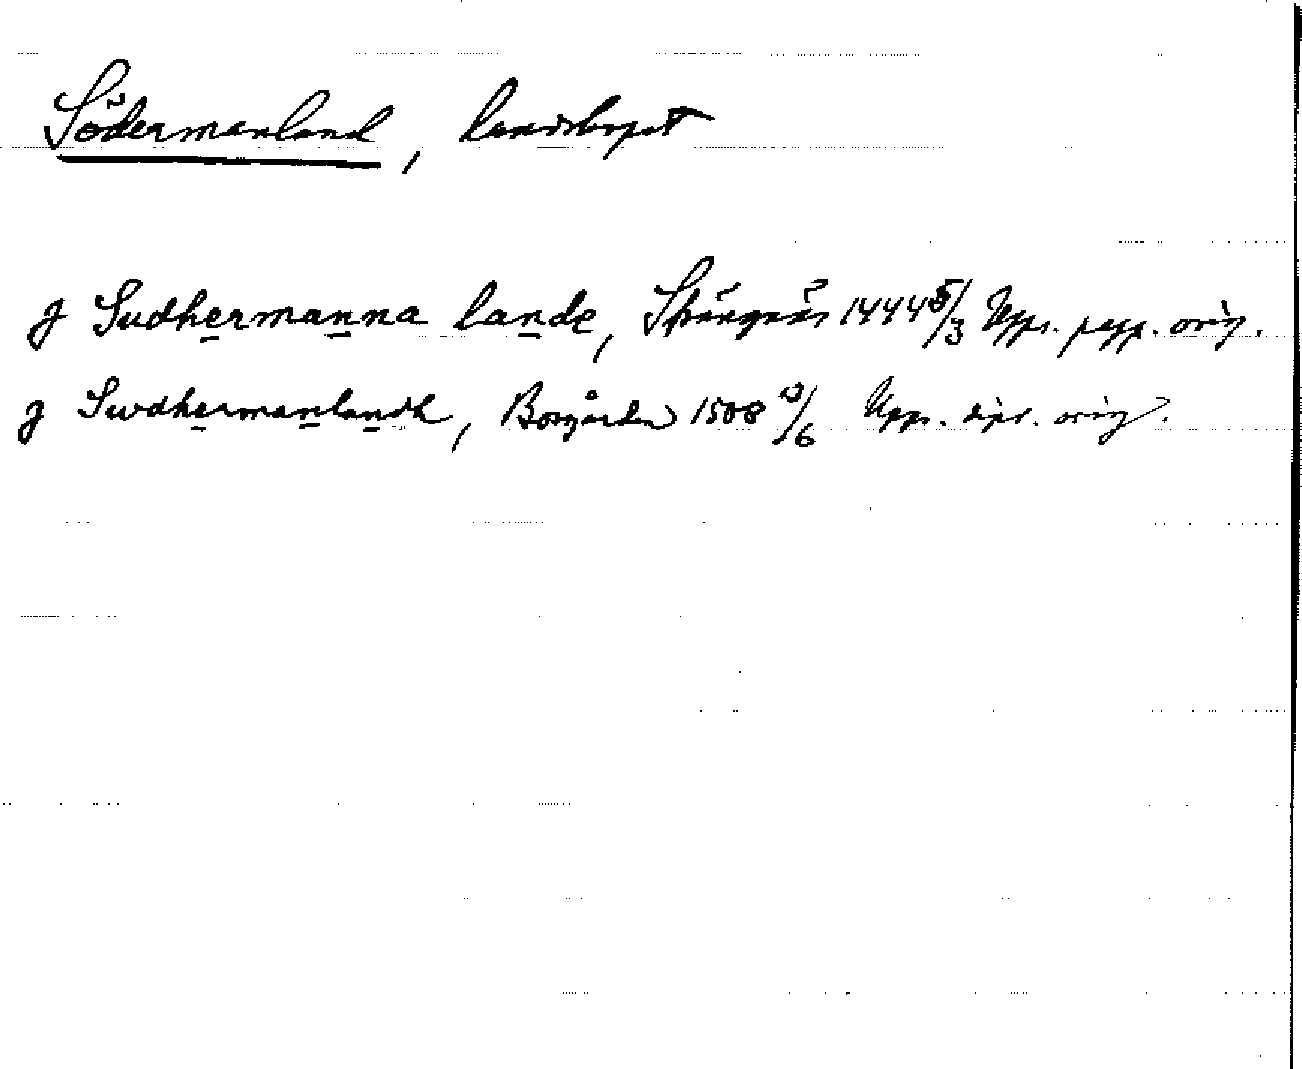 Södermanland, landskapet
J Sudhermanna lande, Strängnäs 1444 5/3 Upps. papp. orig.
J Swdhermanlandh, Borgården 1508 10/6 Upps. dipl. orig.